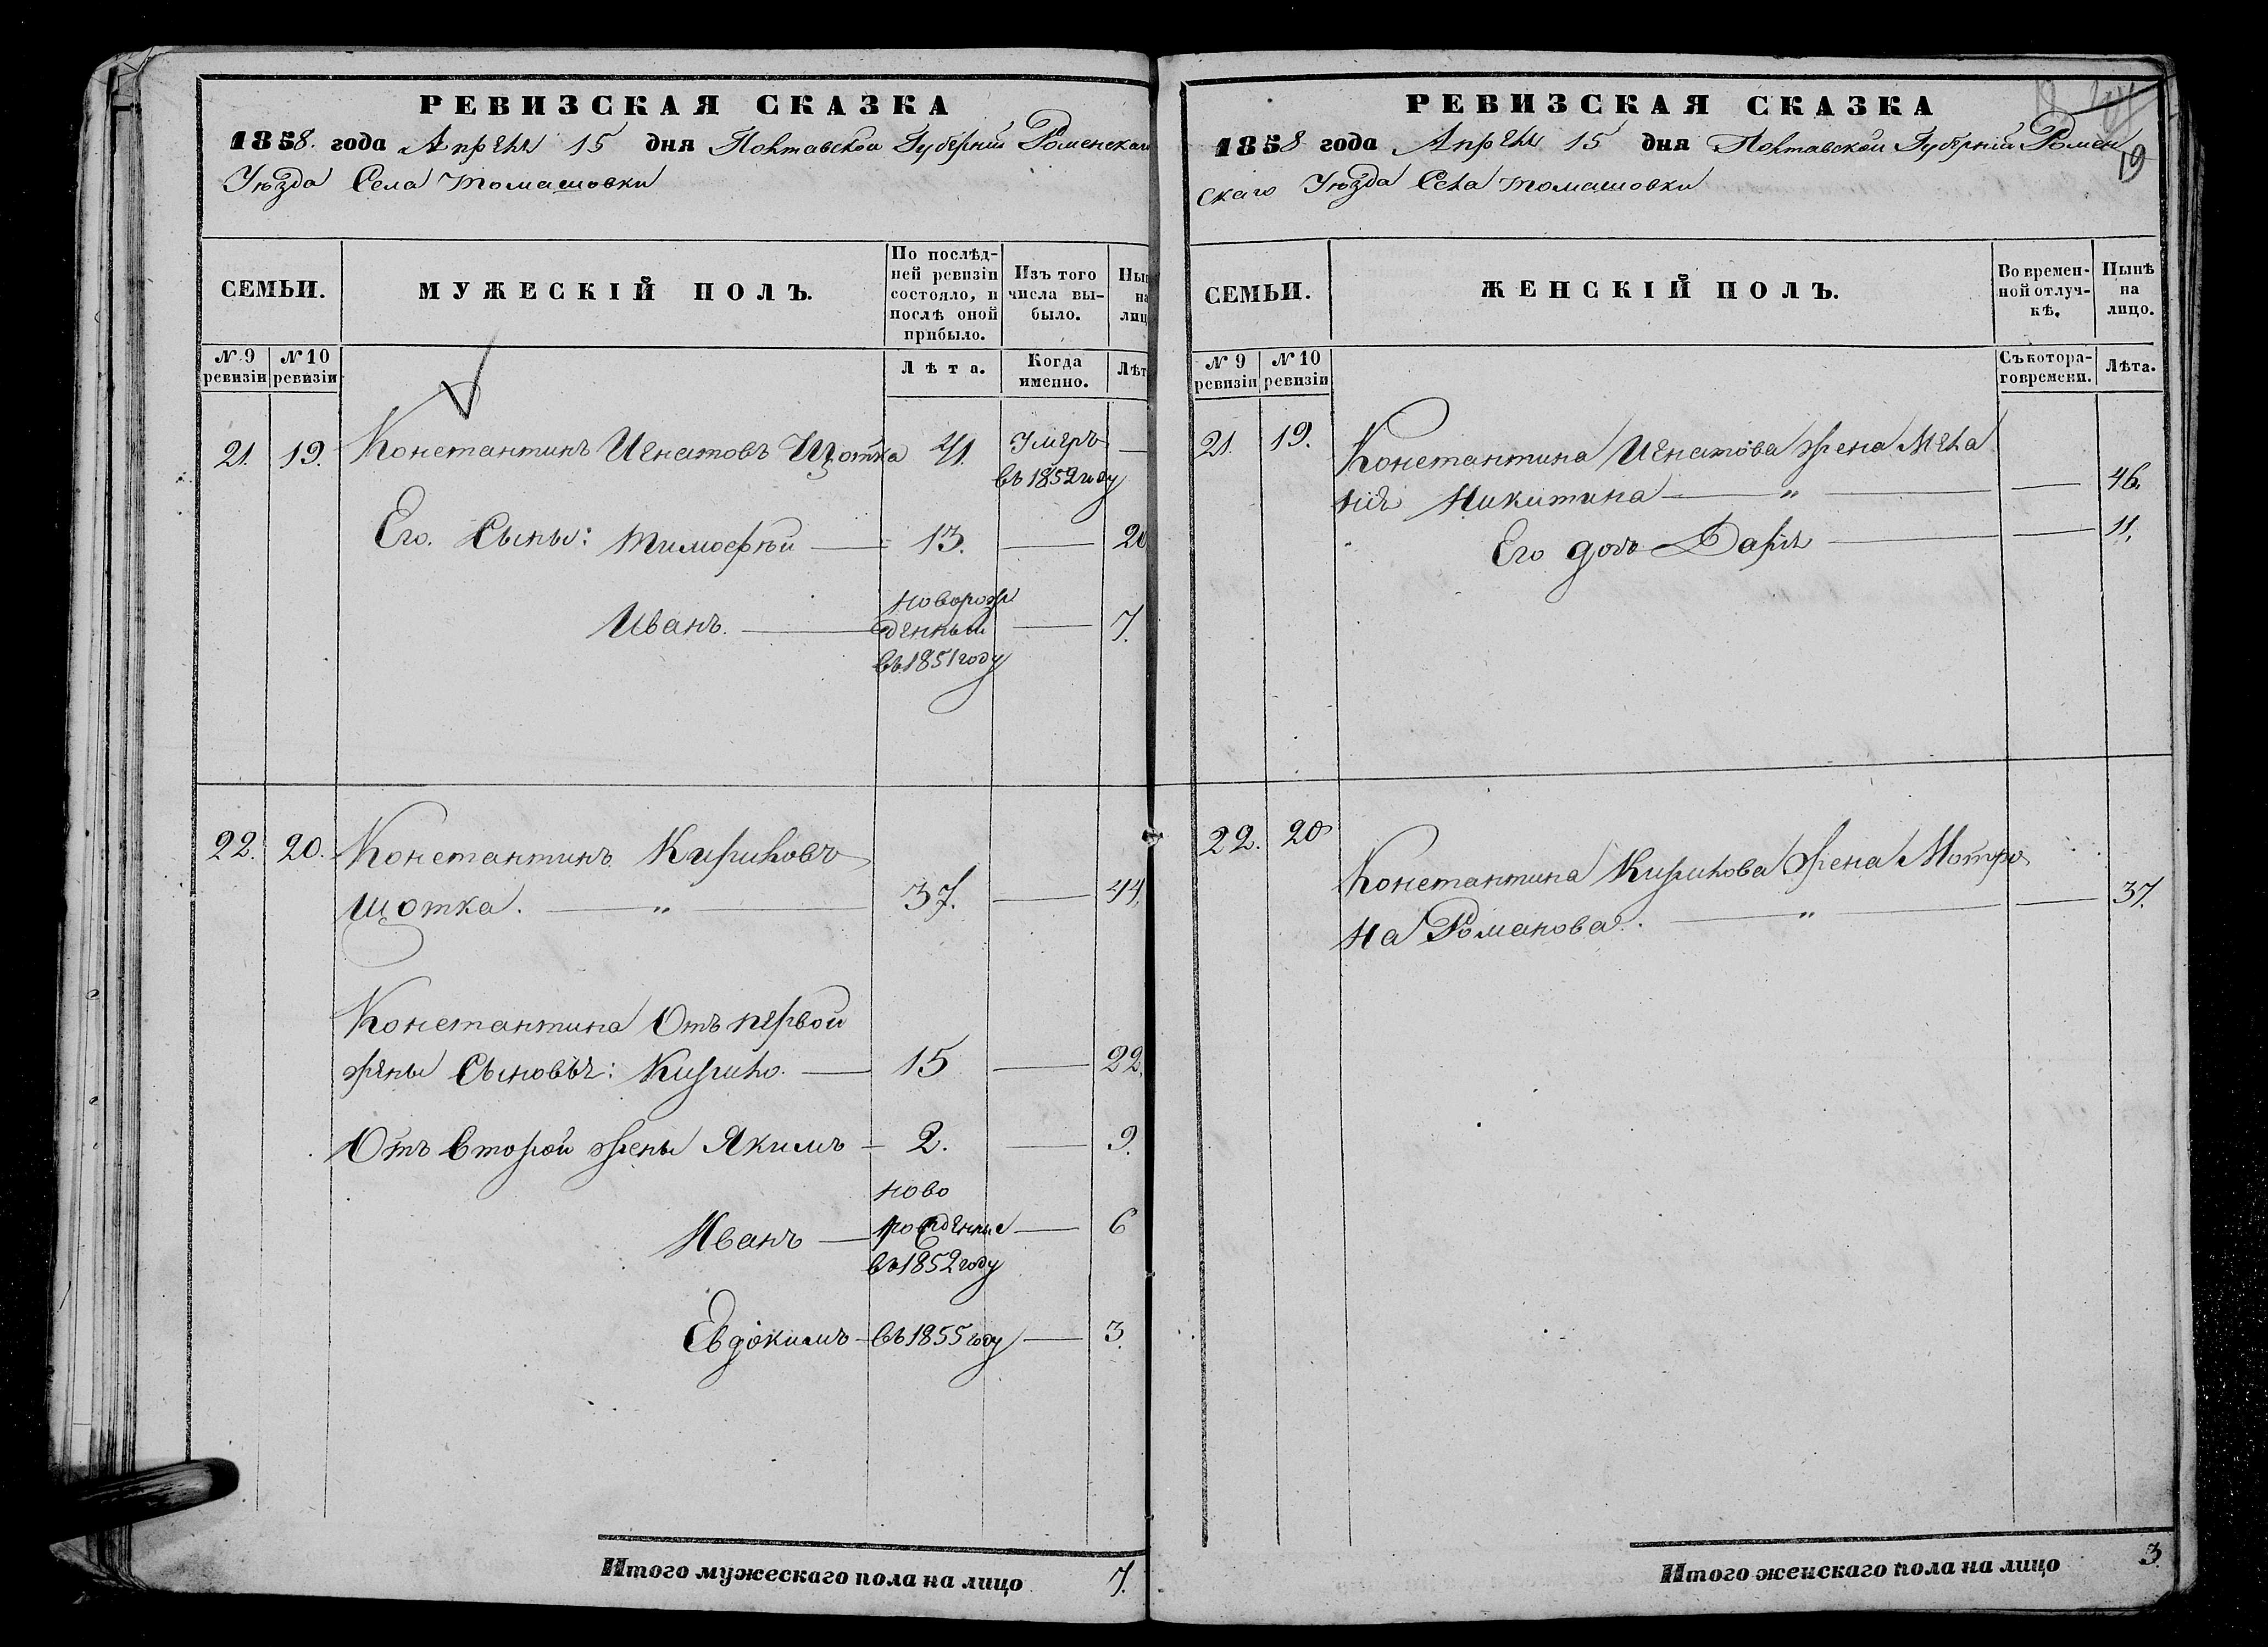 РЕВИЗСКАЯ СКАЗКА
1858. года Апреля 15 дня Полтавской Губерніи Роменскаго
Уѣзда Села Томашовки
СЕМЬИ.
МУЖЕСКІЙ ПОЛЪ.
По послѣд-
ней ревизіи
состояло, и
послѣ оной
прибыло.
Изъ того
числа вы-
было.
Ны
на
лиц
№ 9
ревизіи
№ 10
ревизіи
Лѣта.
Когда
именно.
Лѣт
21. 19. Константинъ Игнатовъ Щотка 41. Умеръ —
въ 1852 году
Его. Сыны: Тимофѣй — 13. — 20
Иванъ. — Новорож
денный — 7.
въ 1851 году
22. 20. Константинъ Кириловъ
Щотка. — „ — 37. — 44.
Константина Отъ первой
жены Сыновья: Кирило. — 15 — 22.
Отъ Второй жены Якимъ — 2. — 9.
Ново
Иванъ — рожденные — 6
въ 1852 году
Евдокимъ — въ 1855 году — 3.
Итого мужескаго пола на лицо 7.
РЕВИЗСКАЯ СКАЗКА
1858 года Апреля 15 дня Полтавской Губерніи Ромен
скаго Уѣзда Села Томашовки
19
СЕМЬИ.
ЖЕНСКІЙ ПОЛЪ.
Во времен-
ной отлуч-
кѣ.
Нынѣ
на
лицо.
№ 9
ревизіи
№ 10
ревизіи
Съ котора-
го времени.
Лѣта.
21. 19. Константина Игнатова жена Мела
нія Никитина — „ — — 46.
Его дочь Дарья — — 11.
22. 20 Константина Кирилова жена Мотро
на Романова. — „ — — 37.
Итого женскаго пола на лицо 3.